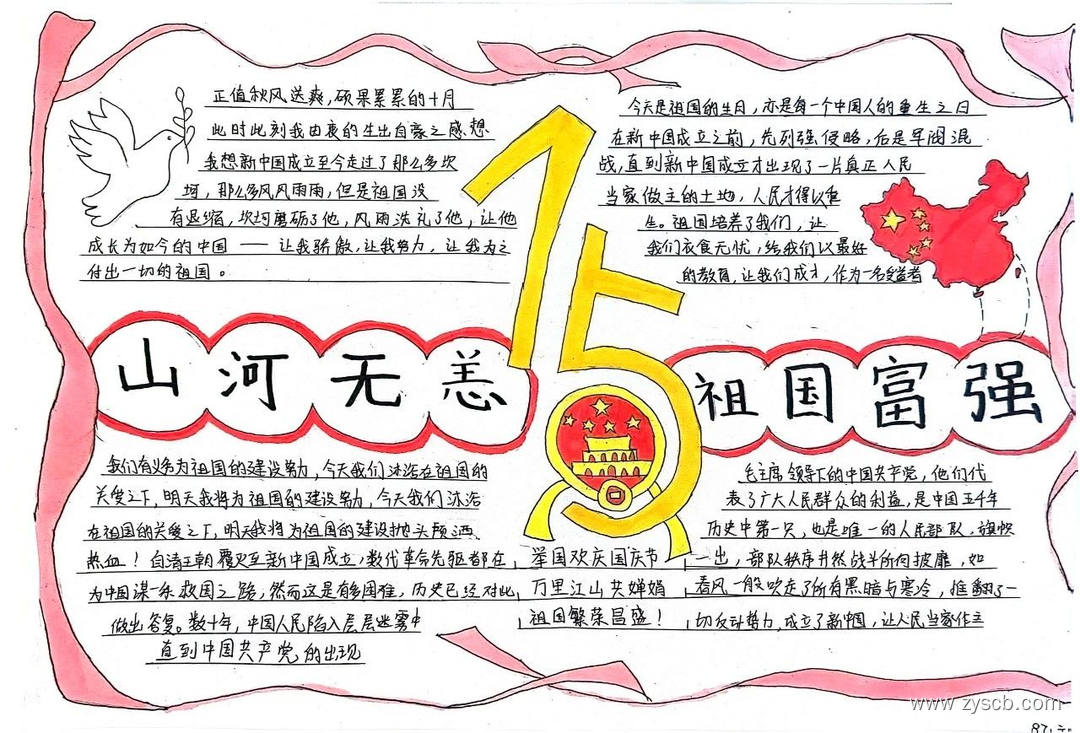 正值秋风送爽，硕果累累的十月
此时此刻我由衷的生出自豪之感，想
我想新中国成立至今走过了那么多坎
坷，那么多风风雨雨，但是祖国没
有退缩，坎坷磨砺了他，风雨洗礼了他，让他
成长为如今的中国——让我骄傲，让我努力，让我为之
付出一切的祖国。
75
今天是祖国的生日，亦是每一个中国人的重生之日
在新中国成立之前，先列强侵略，后是军阀混
战，直到新中国成立才出现了一片真正人民
当家做主的土地，人民才得以重
生。祖国培养了我们，让
我们衣食无忧，给我们以最好
的教育，让我们成才，作为一名受益者
山河无恙
祖国富强
我们有义务为祖国的建设努力，今天我们沐浴在祖国的
关爱之下，明天我将为祖国的建设努力，今天我们沐浴
在祖国的关爱之下，明天我将为祖国的建设抛头颅洒
热血！自清王朝覆灭至新中国成立，数代革命先驱都在
为中国谋一条救国之路，然而这是有多困难，历史已经对此
做出答复。数十年，中国人民陷入层层迷雾中
直到中国共产党的出现
举国欢庆国庆节
万里江山共婵娟
祖国繁荣昌盛！
毛主席领导下的中国共产党，他们代
表了广大人民群众的利益，是中国五千年
历史中第一只，也是唯一的人民部队，旗帜
一出，部队秩序井然战斗所向披靡，如
春风一般吹走了所有黑暗与寒冷，推翻了一
切反动势力，成立了新中国，让人民当家作主
www.zyscb.com